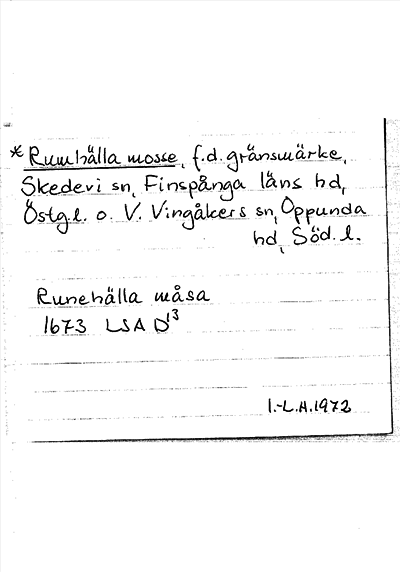 * Rumhälla mosse, f.d. gränsmärke,
Skedevi sn, Finspånga läns hd,
Östg.l. o. V. Vingåkers sn, Oppunda
hd, Söd. l.
Runehälla måsa
1673 LSA D13
I.-L.A. 1972